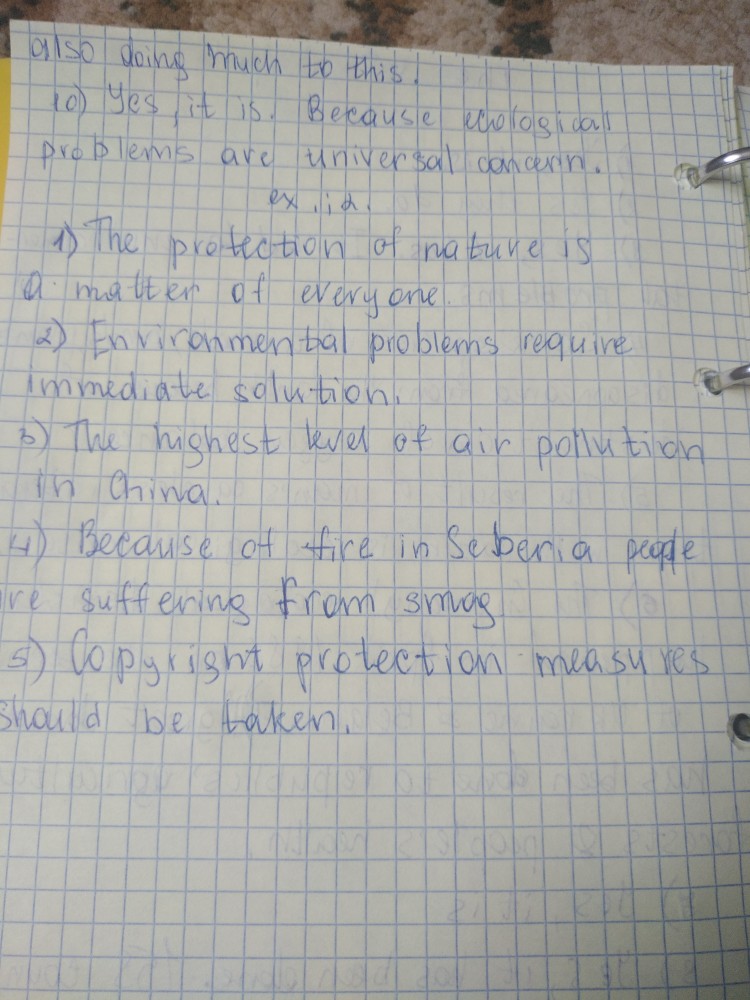 also doing much to this.
10) Yes, it is. Because ecological
problems are universal concern.
ex. 12.
1) The protection of nature is
a matter of everyone.
2) Environmental problems require
immediate solution.
3) The highest level of air pollution
in China.
4) Because of fire in Seberia people
re suffering from smog
5) Copyright protection measures
should be taken.